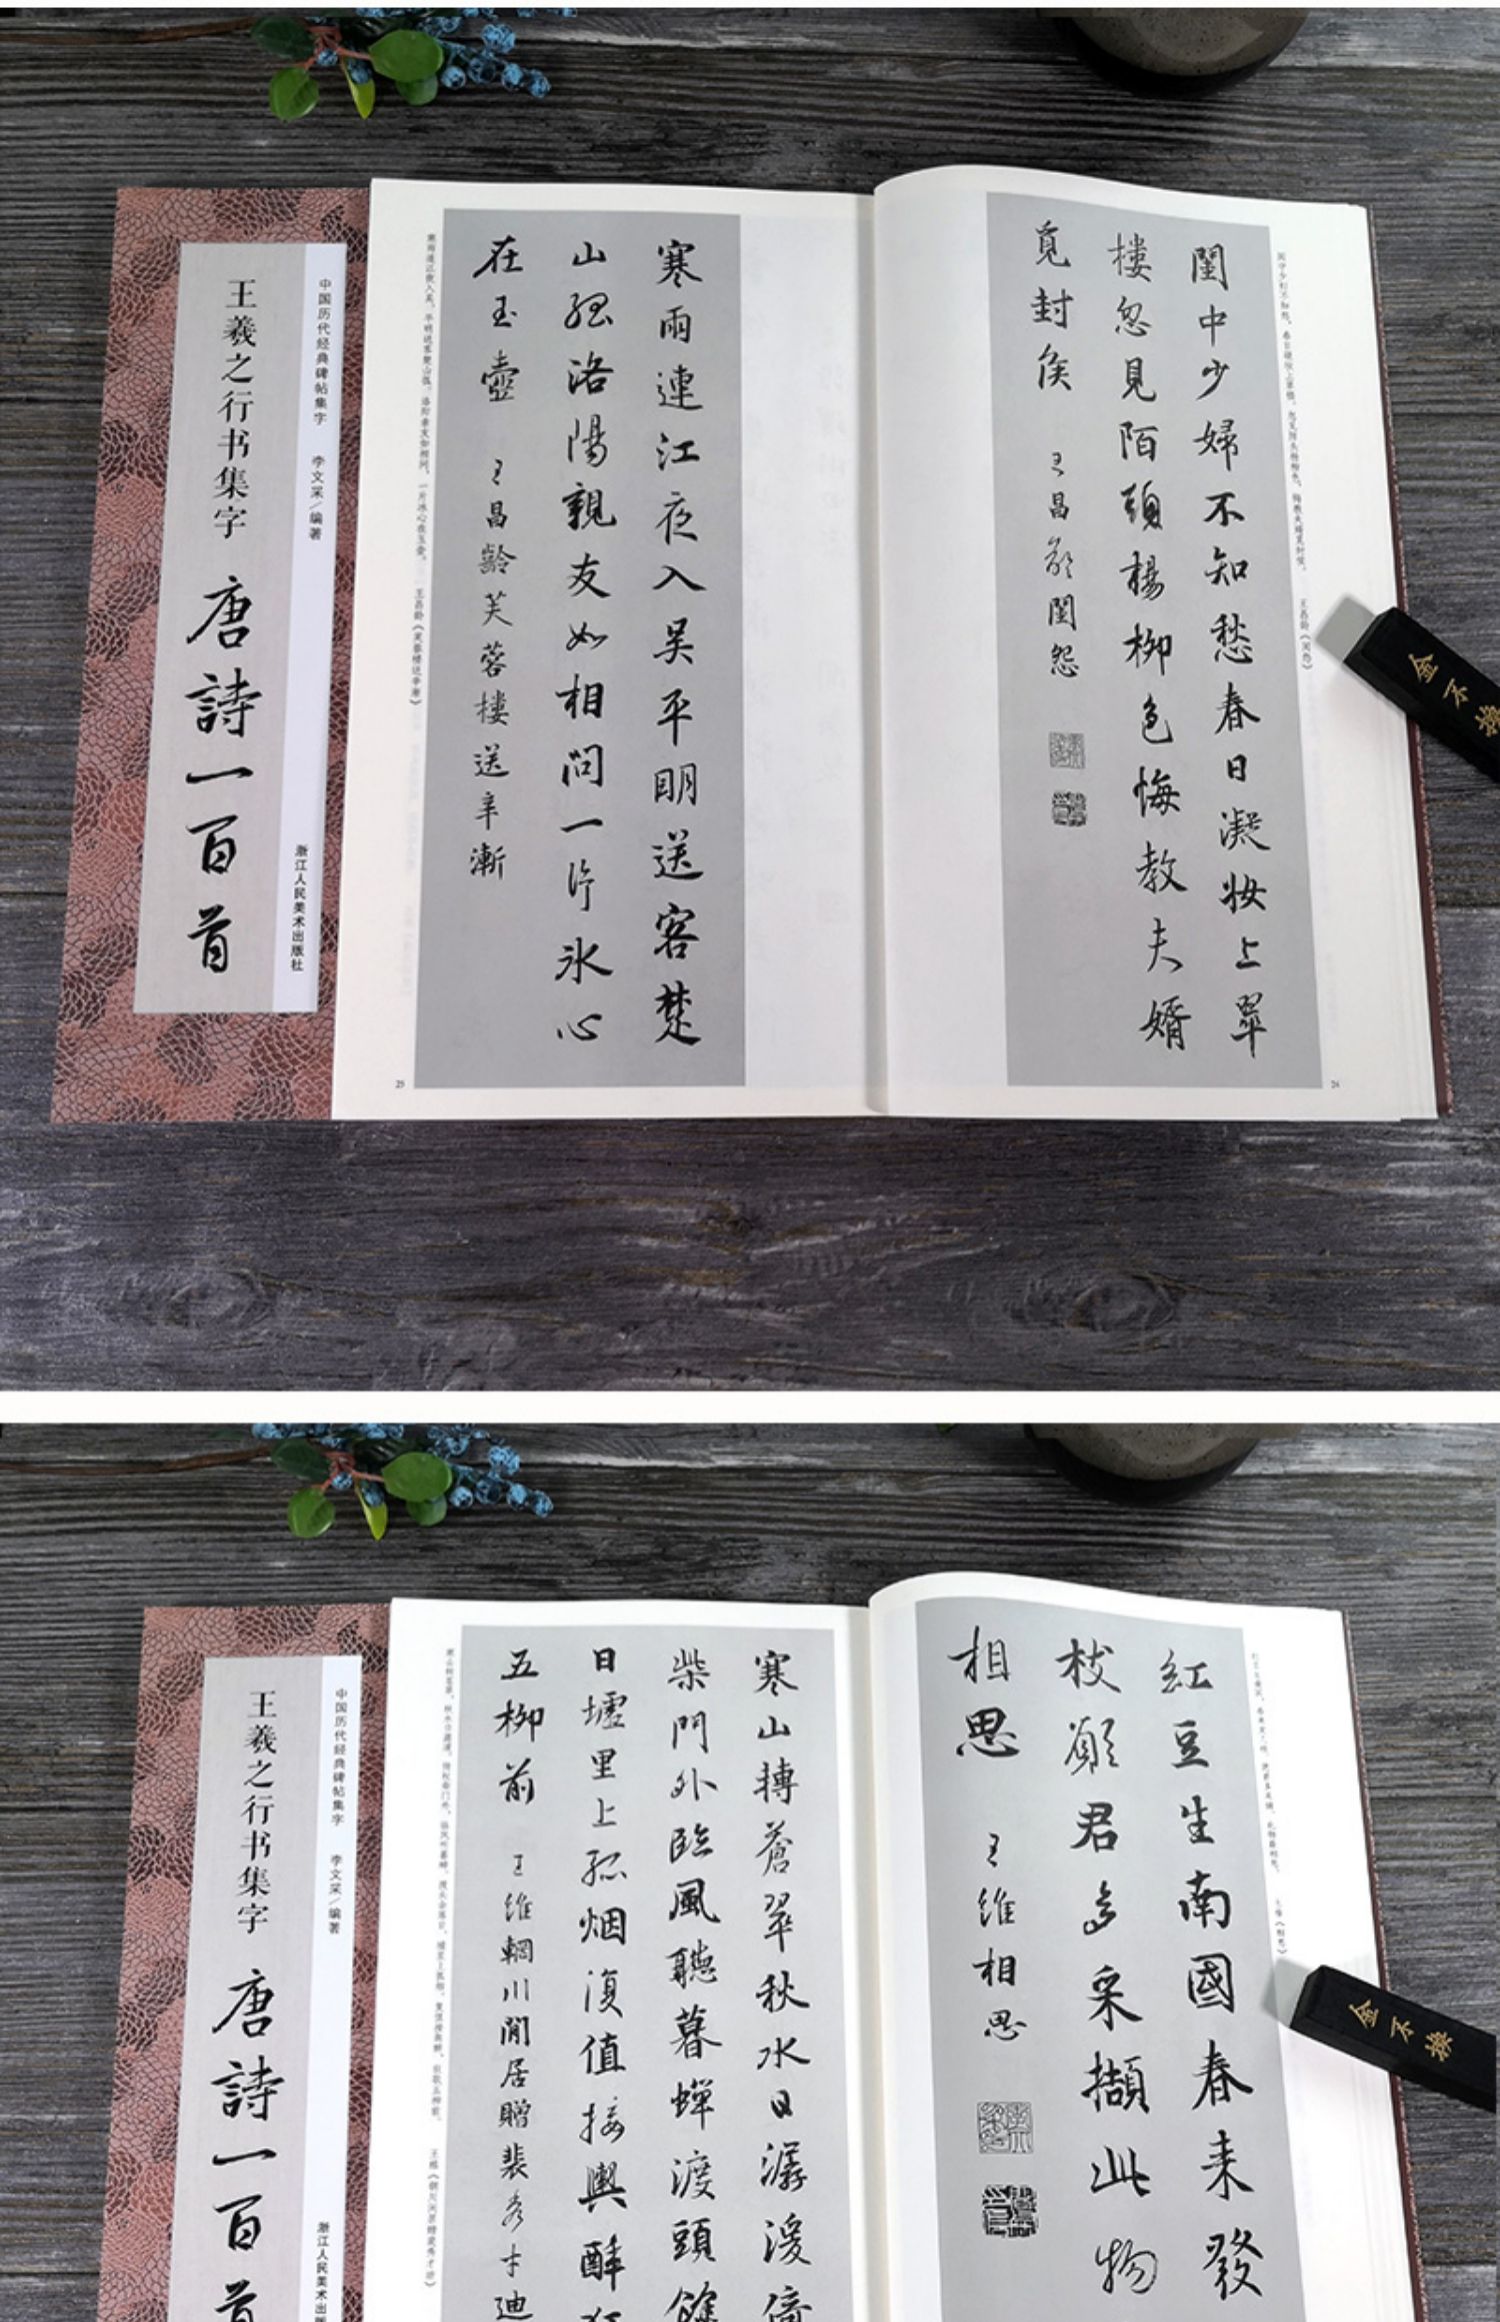 王羲之行书集字 唐詩一百首
中国历代经典碑帖集字 李文采/编著
浙江人民美术出版社
閨中少婦不知愁春日凝妝上翠
樓忽見陌頭楊柳色悔教夫婿
覓封侯
王昌齡閨怨
王昌龄《闺怨》
24
金不換
寒雨連江夜入吴平明送客楚
山孤洛陽親友如相問一片冰心
在玉壺
王昌齡芙蓉樓送辛漸
寒雨连江夜入吴，平明送客楚山孤。洛阳亲友如相问，一片冰心在玉壶。 王昌龄《芙蓉楼送辛渐》
25
王羲之行书集字 唐詩一百首
中国历代经典碑帖集字 李文采/编著
浙江人民美术出版
紅豆生南國春来發
枝願君多采擷此物
相思
王維相思
金不換
寒山轉蒼翠秋水日潺湲倚
柴門外臨風聽暮蟬渡頭餘
日墟里上孤烟復值接輿醉狂
五柳前
王維輞川閒居贈裴秀才迪